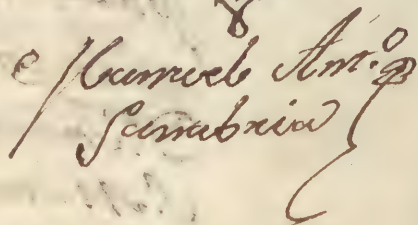 Manuel Ant.º
Sanabria